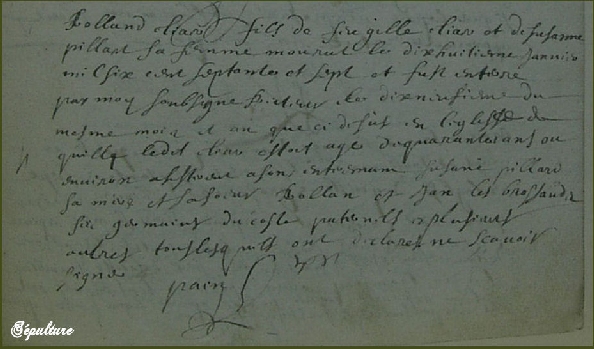 Rolland cliaro fils de feu gille cliaro et de susanne
pillart sa femme mourut le dixhuitieme Janvier
mil six cent septantes et sept et fust enterré
par moy soubsigné Recteur le dixneufieme du
mesme mois et an que ci desus en leglisse de
ledit cliaro estoit agé de quarantes ans ou
environ asisterent a son enterremant susane pillard
sa mere et sa soeur Rollan et Jan les brossauds
germains du costé paternels et plusieurs
autres tous lesquels ont declarez ne scavoir
signer
Sépulture